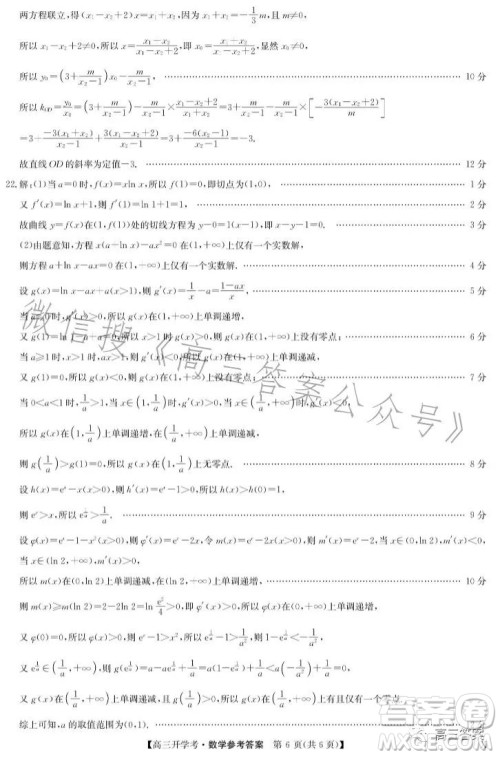 两方程联立,得(x₁-x₂+2)x=x₁+x₂,因为x₁+x₂=-1/3 m,且m≠0,
所以x₁-x₂+2≠0,所以x=(x₁+x₂)/(x₁-x₂+2),即x₀=(x₁+x₂)/(x₁-x₂+2),显然x₀≠0,
所以y₀=(3+m/(x₂-1))x₀-m/(x₂-1), 10分
所以k_OD=y₀/x₀=(3+m/(x₂-1))-m/(x₂-1)×(x₁-x₂+2)/(x₁+x₂)=3+m/(x₂-1)-m/(x₂-1)×[-3(x₁-x₂+2)/m]
=3+-3(x₁+x₂)/(x₂-1)+3(x₁-x₂+2)/(x₂-1)=3+-6(x₂-1)/(x₂-1)=-3.
故直线OD的斜率为定值-3. 12分
22.解:(1)当a=0时,f(x)=xln x,所以f(1)=0,即切点为(1,0), 1分
又f′(x)=ln x+1,所以f′(1)=ln 1+1=1, 2分
故曲线y=f(x)在(1,f(1))处的切线方程为y-0=1(x-1),即x-y-1=0. 3分
(2)由题意知,方程x(a+ln x)-ax²=0在(1,+∞)上仅有一个实数解,
则方程a+ln x-ax=0在(1,+∞)上仅有一个实数解. 4分
设g(x)=ln x-ax+a(x>1),则g′(x)=1/x-a=(1-ax)/x. 5分
当a≤0时,g′(x)>0,所以g(x)在(1,+∞)上单调递增,
又g(1)=0,所以x>1时g(x)>0,所以g(x)在(1,+∞)上没有零点; 6分
当a≥1时,x>1时,ax>1,则g′(x)<0,所以g(x)在(1,+∞)上单调递减,
又g(1)=0,所以g(x)<0,则g(x)在(1,+∞)上没有零点; 7分
当0<a<1时,1/a>1,当x∈(1,1/a)时,g′(x)>0,当x∈(1/a,+∞)时,g′(x)<0,
所以g(x)在(1,1/a)上单调递增,在(1/a,+∞)上单调递减,
则g(1/a)>g(1)=0,所以g(x)在(1,1/a)上无零点. 8分
设h(x)=eˣ-x(x>0),则h′(x)=eˣ-1>0,所以h(x)在(0,+∞)上单调递增,
则eˣ>x,所以e^(1/a)>1/a. 9分
设φ(x)=eˣ-1-x²(x>0),则φ′(x)=eˣ-2x,令m(x)=eˣ-2x,则m′(x)=eˣ-2,当x∈(0,ln 2)时,m′(x)<0,当
x∈(ln 2,+∞)时,m′(x)>0,
所以m(x)在(0,ln 2)上单调递减,在(ln 2,+∞)上单调递增, 10分
则m(x)≥m(ln 2)=2-2ln 2=ln e²/4>0,即φ′(x)>0,φ(x)在(0,+∞)上单调递增,
又φ(0)=0,所以eˣ-1>x²,所以e^(1/a)-1>1/a²,
又e^(1/a)∈(1/a,+∞),则g(e^(1/a))=a-ae^(1/a)+1/a=a(1-e^(1/a))+1/a<a(-1/a²)+1/a=0,
又g(x)在(1/a,+∞)上单调递减,g(1/a)>0,所以g(x)在(1/a,+∞)上仅有一个零点.
综上可知,a的取值范围为(0,1).
【高三开学考·数学参考答案 第6页(共6页)】
微信搜《高三答案公众号》